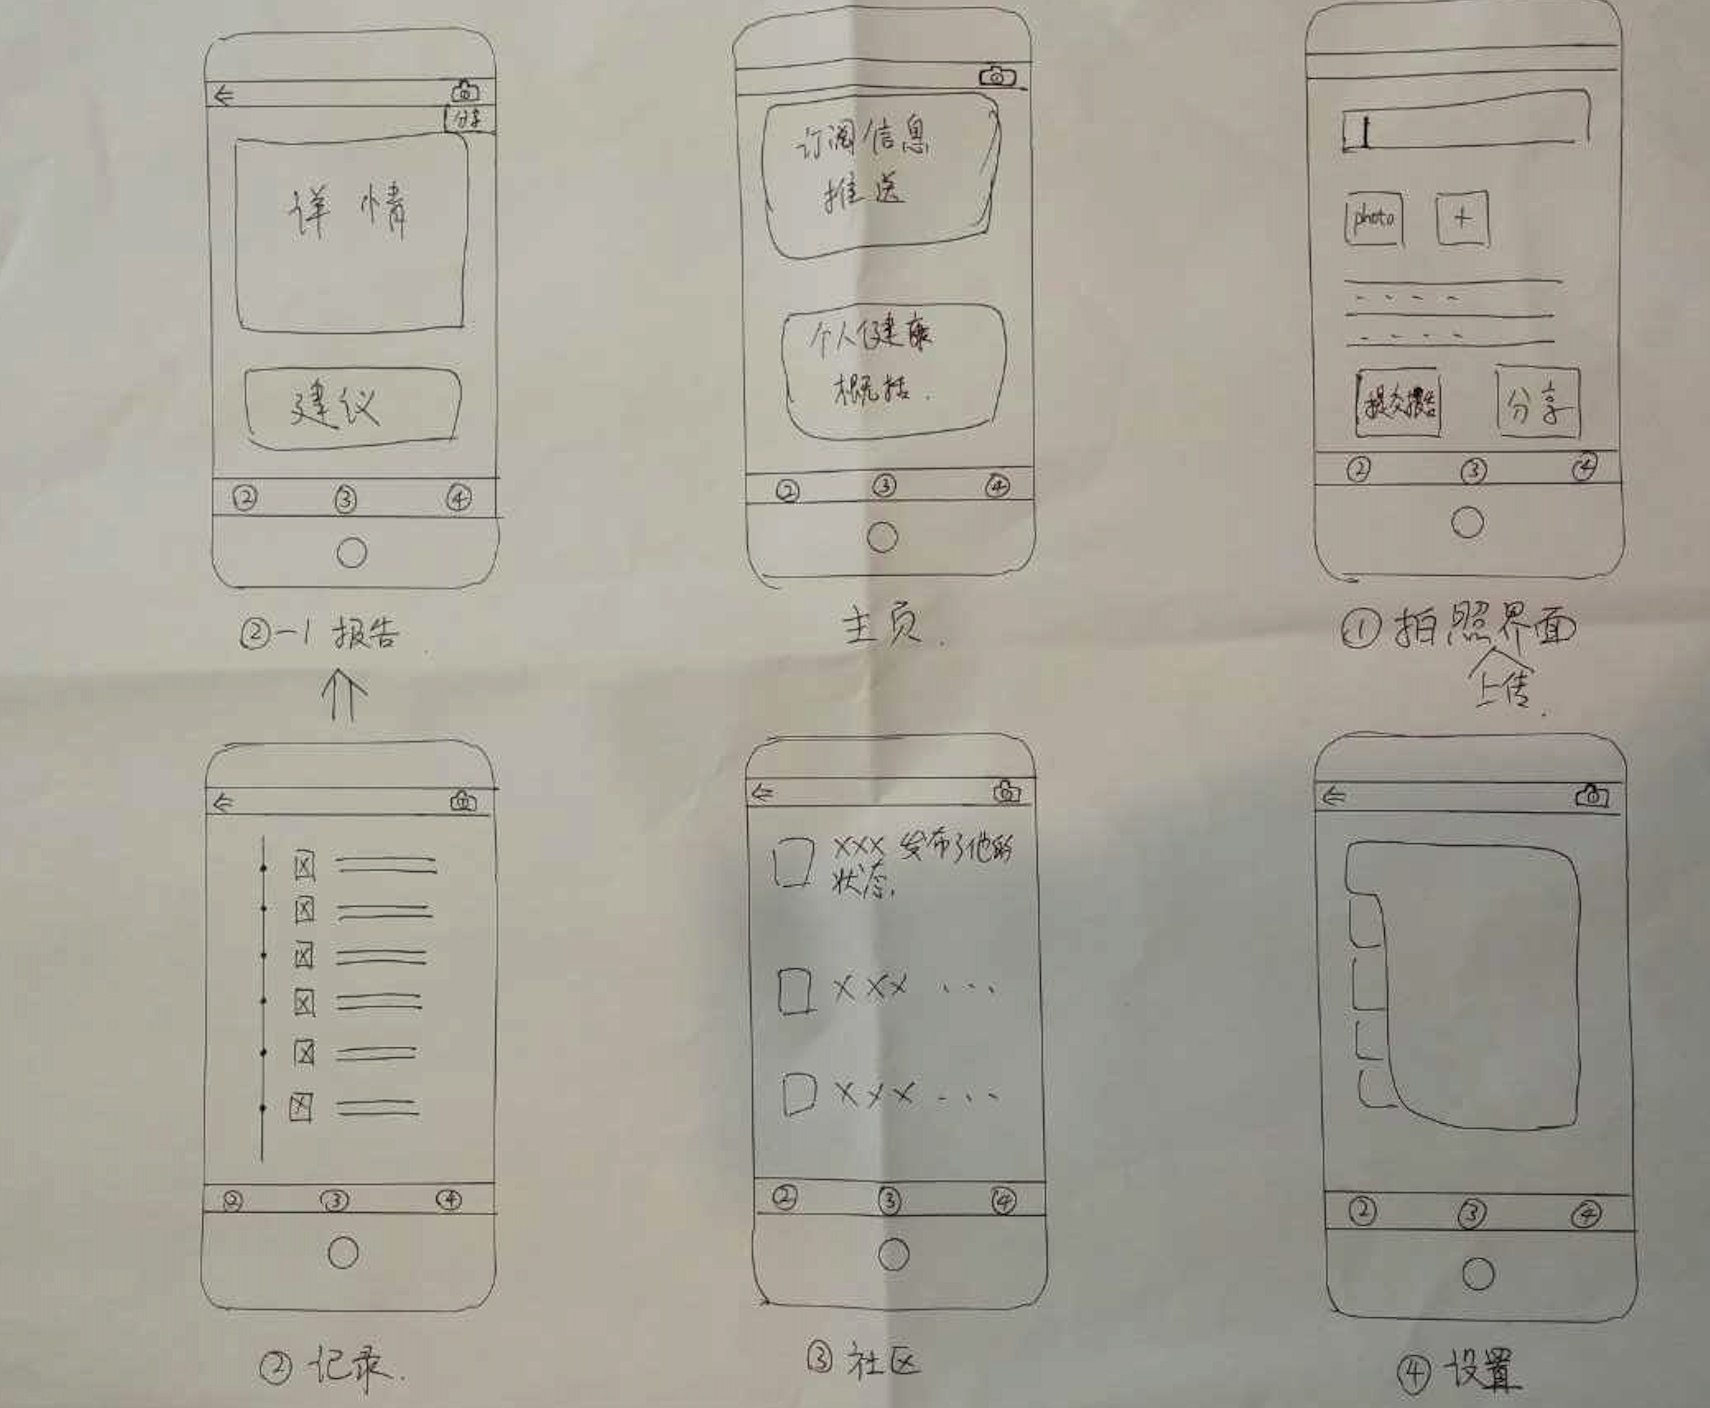 分享
详情
建议
② ③ ④
②-1 报告
订阅信息
推送
个人健康
概括.
② ③ ④
主页.
photo +
提交报告 分享
② ③ ④
①拍照界面
上传.
② ③ ④
②记录.
XXX 发布了他的
状态.
XXX ...
XXX ...
② ③ ④
③社区
② ③ ④
④设置